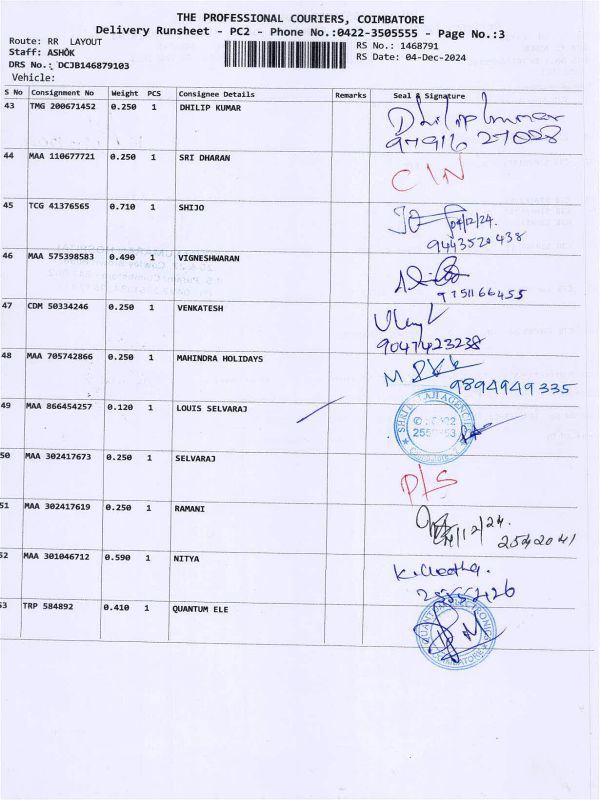 THE PROFESSIONAL COURIERS, COIMBATORE
Delivery Runsheet - PC2 - Phone No.:0422-3505555 - Page No.:3
Route: RR LAYOUT
RS No.: 1468791
Staff: ASHOK
RS Date: 04-Dec-2024
DRS No.: DCJB146879103
Vehicle:
S No Consignment No Weight PCS Consignee Details Remarks Seal & Signature
43 TMG 200671452 0.250 1 DHILIP KUMAR Dhilip kumar
97916 27028
44 MAA 110677721 0.250 1 SRI DHARAN CIN
45 TCG 41376565 0.710 1 SHIJO 04/12/24.
9443520438
46 MAA 575398583 0.490 1 VIGNESHWARAN
9751166455
47 CDM 50334246 0.250 1 VENKATESH
9047423238
48 MAA 705742866 0.250 1 MAHINDRA HOLIDAYS
9894949335
49 MAA 866454257 0.120 1 LOUIS SELVARAJ
50 MAA 302417673 0.250 1 SELVARAJ P/S
51 MAA 302417619 0.250 1 RAMANI 4/12/24.
2542041
52 MAA 301046712 0.590 1 NITYA
53 TRP 584892 0.410 1 QUANTUM ELE
QUANTUM ELECTRONICS
COIMBATORE